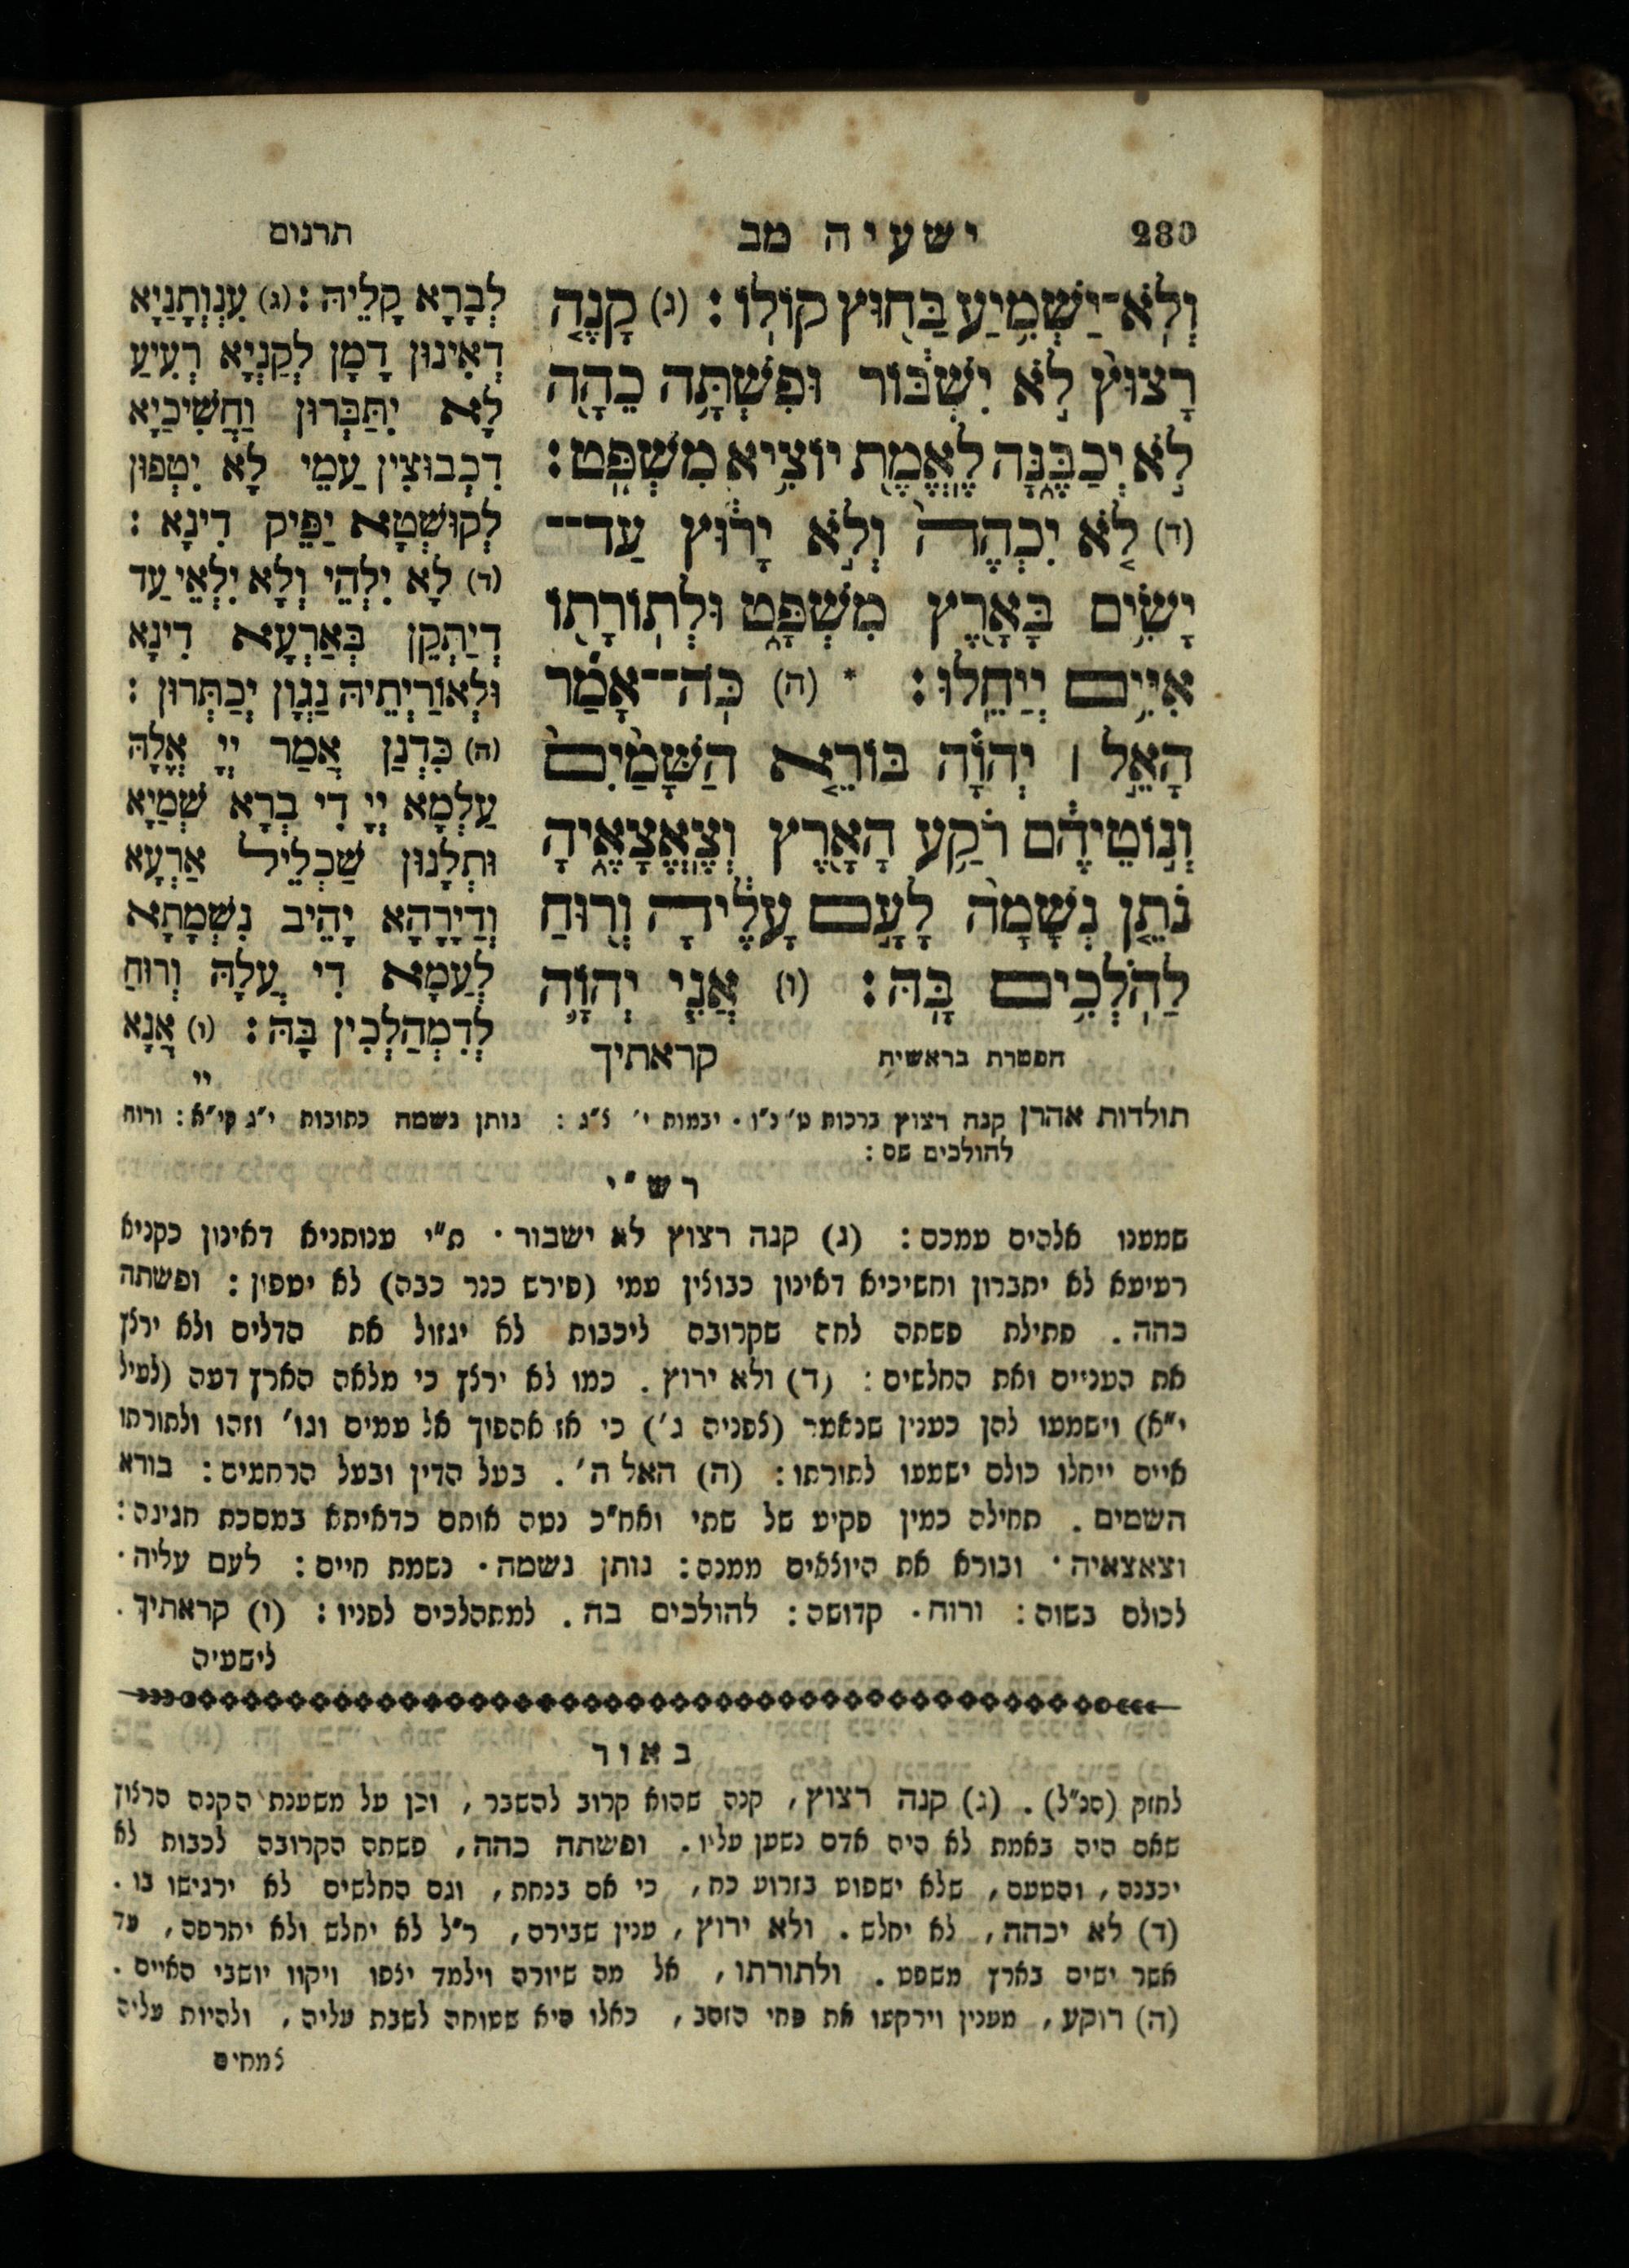 280
ישעיה מב
תרגום
וְלֹֽא־יַשְׁמִ֥יעַ בַּח֖וּץ קוֹלֽוֹ׃ (ג) קָנֶ֤ה
רָצוּץ֙ לֹ֣א יִשְׁבּ֔וֹר וּפִשְׁתָּ֥ה כֵהָ֖ה
לֹ֣א יְכַבֶּ֑נָּה לֶאֱמֶ֖ת יוֹצִ֥יא מִשְׁפָּֽט׃
(ד) לֹ֤א יִכְהֶה֙ וְלֹ֣א יָר֔וּץ עַד־־
יָשִׂ֥ים בָּאָ֖רֶץ מִשְׁפָּ֑ט וּלְתֽוֹרָת֖וֹ
אִיִּ֥ים יְיַחֵֽלוּ׃ * (ה) כֹּֽה־־אָמַ֞ר
הָאֵ֣ל ׀ יְהוָֹ֗ה בּוֹרֵ֤א הַשָּׁמַ֙יִם֙
וְנ֣וֹטֵיהֶ֔ם רֹקַ֥ע הָאָ֖רֶץ וְצֶֽאֱצָאֶ֑יהָ
נֹתֵ֤ן נְשָׁמָה֙ לָעָ֣ם עָלֶ֔יהָ וְר֖וּחַ
לַהֹֽלְכִ֥ים בָּֽהּ׃ (ו) אֲנִ֧י יְהוָֹ֛ה
הפטרת בראשית
קראתיך
לְבָרָא קָלֵיהּ׃ (ג) עִנְוְתָנַיָא
דְאִינוּן דָמָן לְקַנְיָא רְעִיעַ
לָא יִתַּבְּרוּן וַחֲשִׁיכַיָא
דִכְבוּצִין עַמֵי לָא יִטְפוּן
לְקוּשְׁטָא יַפֵּיק דִינָא׃
(ד) לָא יִלְהֵי וְלָא יִלְאֵי עַד
דְיַתְקֵן בְּאַרְעָא דִינָא
וּלְאוֹרַיְתֵיהּ נַגְוָן יְכַתְּרוּן׃
(ה) כִּדְנַן אֲמַר יְיָ אֱלָהּ
עַלְמָא יְיָ דִי בְרָא שְׁמַיָא
וּתְלָנוּן שַׁכְלֵיל אַרְעָא
וְדַיָרָהָא יָהֵיב נִשְׁמָתָא
לְעַמָא דִי עֲלָהּ וְרוּחַ
לְדִמְהַלְכִין בָּהּ׃ (ו) אֲנָא
יי
תולדות אהרן קנה רצוץ ברכות ט׳ נ״ו. יבמות י׳ צ״ג: נותן נשמה כתובות י״ג קי״א: ורוח
להולכים שם:
רש״י
שמענו אלהים עמכם: (ג) קנה רצוץ לא ישבור. ת״י ענותניא דאינון כקניא
רעיעא לא יתברון וחשיכיא דאינון כבוצין עמי (פירש כנר כבה) לא יטפין: ופשתה
כהה. פתילת פשתה לחה שקרובה ליכבות לא יגזול את הדלים ולא ירצץ
את העניים ואת החלשים: (ד) ולא ירוץ. כמו לא ירצץ כי מלאה הארץ דעה (לעיל
י״א) וישמעו להן כענין שנאמר (צפניה ג׳) כי אז אהפוך אל עמים וגו׳ וזהו ולתורתו
איים ייחלו כולם ישמעו לתורתו: (ה) האל ה׳. בעל הדין ובעל הרחמים: בורא
השמים. תחילה כמין פקיע של שתי ואח״כ נטה אותם כדאיתא במסכת חגיגה:
וצאצאיה. ובורא את היוצאים ממנה: נותן נשמה. נשמת חיים: לעם עליה.
לכולם בשוה: ורוח. קדושה: להולכים בה. למתהלכים לפניו: (ו) קראתיך.
לישעיה
באור
לחזק (הנ״ל). (ג) קנה רצוץ, קנה שהוא קרוב להשבר, וכן על משענת הקנה הרצוץ
שאם היה באמת לא היה אדם נשען עליו. ופשתה כהה, פשתה הקרובה לכבות לא
יכבנה, והטעם, שלא ישפוט בזרוע כח, כי אם בנחת, וגם החלשים לא ירגישו בו.
(ד) לא יכהה, לא יחלש. ולא ירוץ, ענין שבירה, ר״ל לא יחלש ולא יתרפה, עד
אשר ישים בארץ משפט. ולתורתו, אל מה שיורה וילמד יצפו ויקוו יושבי האיים.
(ה) רוקע, מענין וירקעו את פחי הזהב, כאלו היא שטוחה לשבת עליה, ולהיות עליה
צמחים